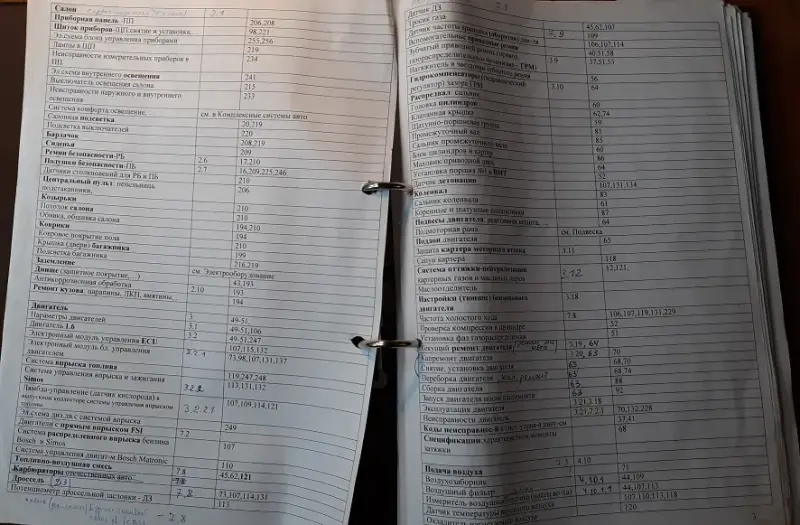 Салон 2.1
Приборная панель -ПП 206,208
Щиток приборов-ПП,снятие и установка, 98,221
Эл.схема блока управления приборами 255,256
Лампы в ЩП 219
Неисправности измерительных приборов в 234
ПП
Эл.схема внутреннего освещения 241
Выключатель освещения салона 215
Неисправности наружного и внутреннего 233
освещения
Система комфорта:освещение, см. в Комплексные системы авто
Салонная подсветка 20,219
Подсветка выключателей 220
Бардачок 208,219
Сиденья 209
Ремни безопасности-РБ 2.6 17,210
Подушки безопасности-ПБ 2.7 16,209,225,246
Датчики столкновений для РБ и ПБ 210
Центральный пульт: пепельница, 206
подстаканники,
Козырьки
Потолок салона 210
Обивка, обшивка салона 210
Коврики 194,210
Ковровое покрытие пола 194
Крышка (двери) багажника 210
Подсветка багажника 199
Заземление 216,219
Днище (защитное покрытие, ...) см. Электрооборудование
Антикоррозионная обработка 43,193
Ремонт кузова: царапины, ЛКП, вмятины, 2.10 193
194
Двигатель
Параметры двигателей 3 49-51,
Двигатель 1.6 3.1 49-51,106
Электронный модуль управления ECU 3.2 49-51,247
Электронный мод. бл. управления 107,115,132
двигателем 2.2.1 73,98,107,131,137
Система впрыска топлива
Система управления впрыска и зажигания 119,247,248
Simos 3.2.2 113,131,132
Лямбда-управление (датчик кислорода) в
выпускном коллекторе системы управления впрыском 3.2.21 107,109,114,121
топлива
Эл.схема диз.дв с системой впрыска
Двигатели с прямым впрыском FSI 249
Система распределенного впрыска бензина 7.2
Bosch и Simos 107
Система управления двигат-м Bosch Matronic
Топливно-воздушная смесь 110
Карбюраторы отечественных авто 7.8 45,62,121
Дроссель (ДЗ) 7.8
Потенциометр дроссельной заслонки - ДЗ 7.8 73,107,114,131
113
2.8
Датчик ДЗ 2.3
Тросик газа 45,62,107
109
Вспомогательные приводные ремни 106,107,114
Зубчатый приводной ремень(привод 40,51,58
газораспределительного механизма - ГРМ) 3.9 37,51,53
Гидрокомпенсаторы (гидравлический 56
регулятор) зазора ГРМ 3.10 64
Распредвал: сальник
Головка цилиндров 60
Клапанная крышка 62,74
Шатунно-поршневая группа 59
Промежуточный вал 81
Сальник промежуточного вала 85
Блок цилиндров и картер 60
Маховик/приводной диск 86
Установка поршня №1 в ВМТ 64
Датчик детонации 52
Коленвал 107,131,134
Сальник коленвала 83
Коренные и шатунные подшипники 61
Подвесы двигателя: 87
Подмоторная рама 64
Поддон двигателя см. Подвеска
Защита картера моторного отсека 65
Сапун картера 3.11
Система 118
картерных газов и масляных паров 2.12 12,121,
Маслоотделитель
Настройки (тюнинг) бензинового 3.18
двигателя
Частота холостого хода 7.8 106,107,119,131,229
Проверка компрессии в цилиндре 52
Установка фаз газораспределения 51
Текущий ремонт двигателя 3.19, 64
Капремонт двигателя 70
Снятие, установка двигателя 63 68,70
Переборка двигателя 63 68,74
Сборка двигателя 63 88
Запуск после капремонта 63 92
Эксплуатация двигателя 3.21,3.18
Неисправности двигателя 3.21,7.21 70,132,228
37,41
Спецификации,характеристики,моменты 68
затяжки
Подача воздуха 2.3 4.10
Воздухозаборник 71
Воздушный фильтр 4.10.1 44,109
Измеритель 4.10.1.1 44,107,113
Датчик температуры 107,110,113,118
120